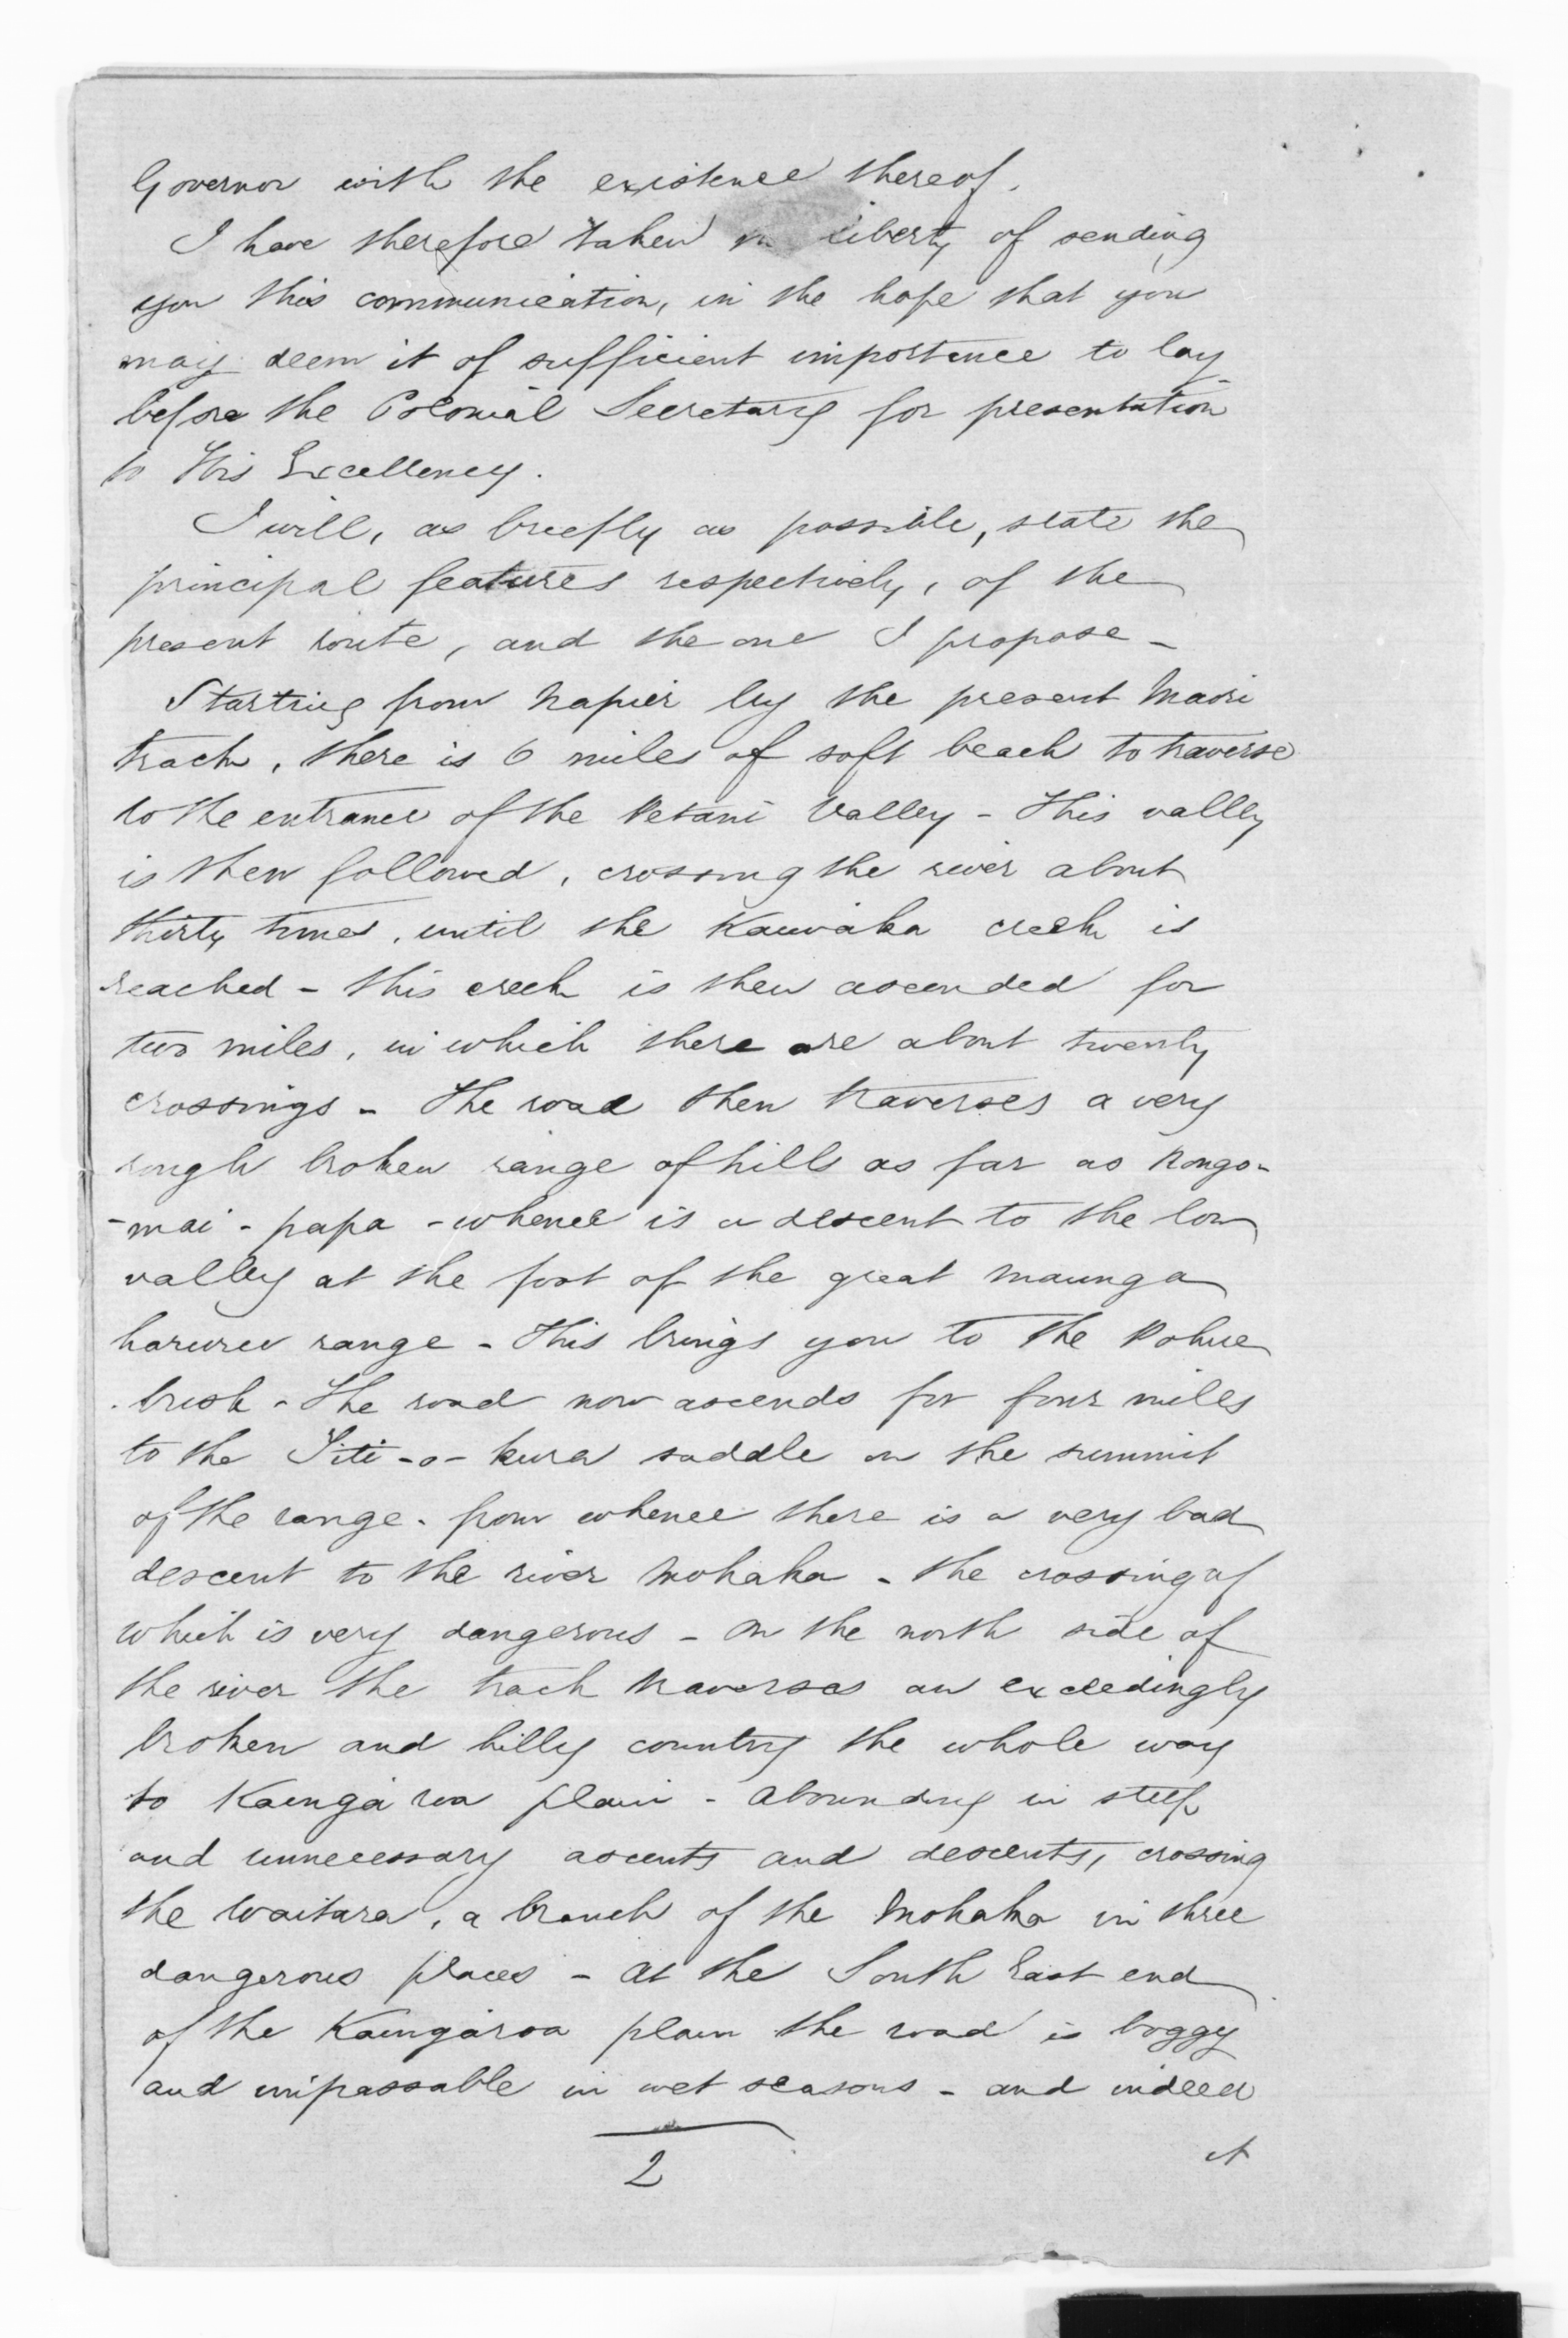 Governor with the existence thereof.
I have therefore taken liberty of sending
you this communication, in the hope that you
may deem it of sufficient importance to lay
before the Colonial Secretary for presentation
to His Excellency.
I will, as briefly as possible, state the
principal features respectively, of the
present route, and the one I propose -
Starting from Napier by the present Maori
track, there is 6 miles of soft beach to traverse
to the entrance of the Petani Valley - This valley
is then followed, crossing the river about
thirty times, until the Kauwaka creek is
reached - this creek is then ascended for
two miles, in which there are about twenty
crossings - The road then traverses a very
rough broken range of hills as far as Rongo-
-mai-papa - whence is a descent to the low
valley at the foot of the great Maunga
haruru range - This brings you to the Pohue
bush - The road now ascends for four miles
to the Titi-o-kura saddle on the summit
of the range - from whence there is a very bad
descent to the river Mohaka - the crossing of
which is very dangerous - On the north side of
the river the track traverses an exceedingly
broken and hilly country the whole way
to Kaingaroa plain - abounding in steep
and unnecessary ascents and descents, crossing
the Waitara, a branch of the Mohaka in three
dangerous places - At the South East end
of the Kaingaroa plain the road is boggy
and impassable in wet seasons - and indeed
2
it